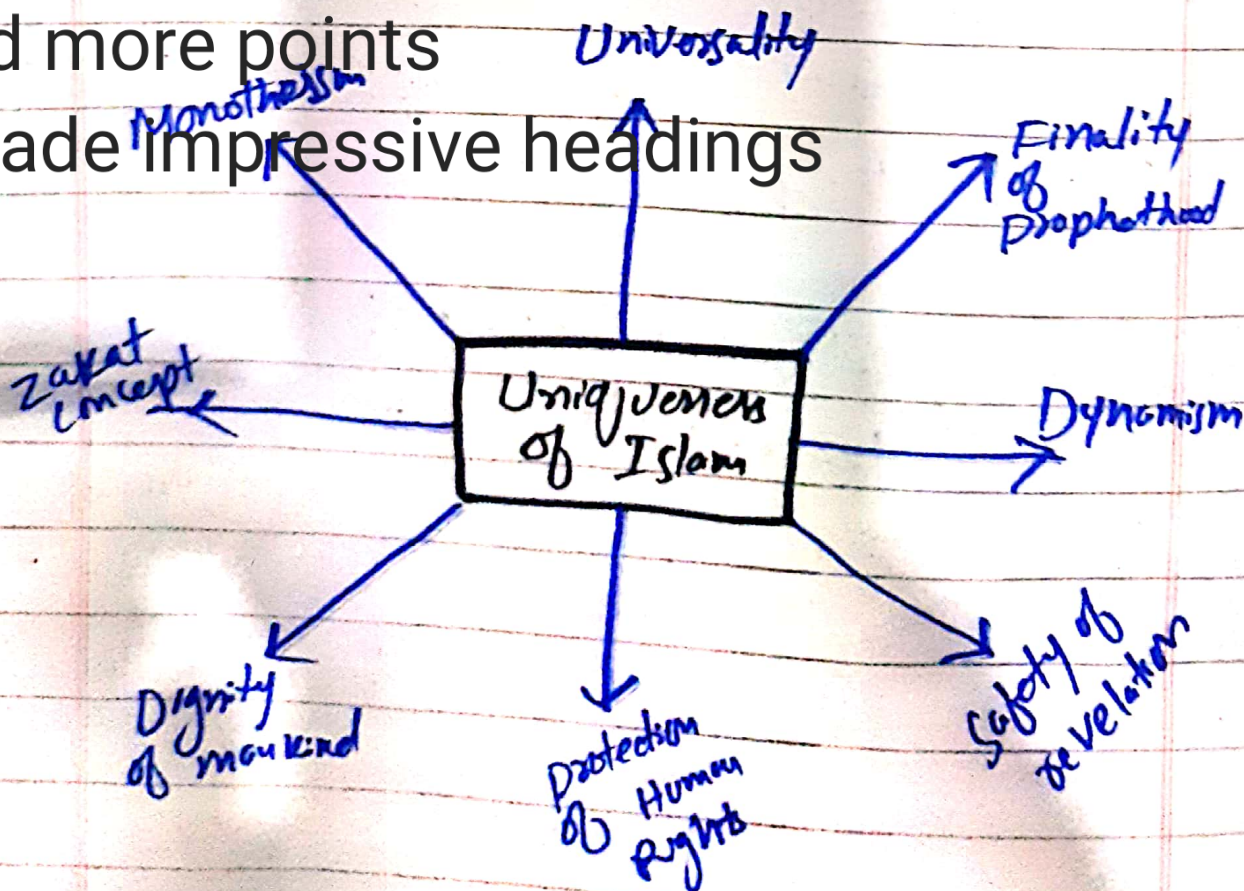 d more points
ade impressive headings
Universality
Monotheism
Finality
of
Prophethood
Zakat
concept
Uniqueness
of Islam
Dynamism
Dignity
of mankind
Protection
of Human
Rights
Safety of
revelation